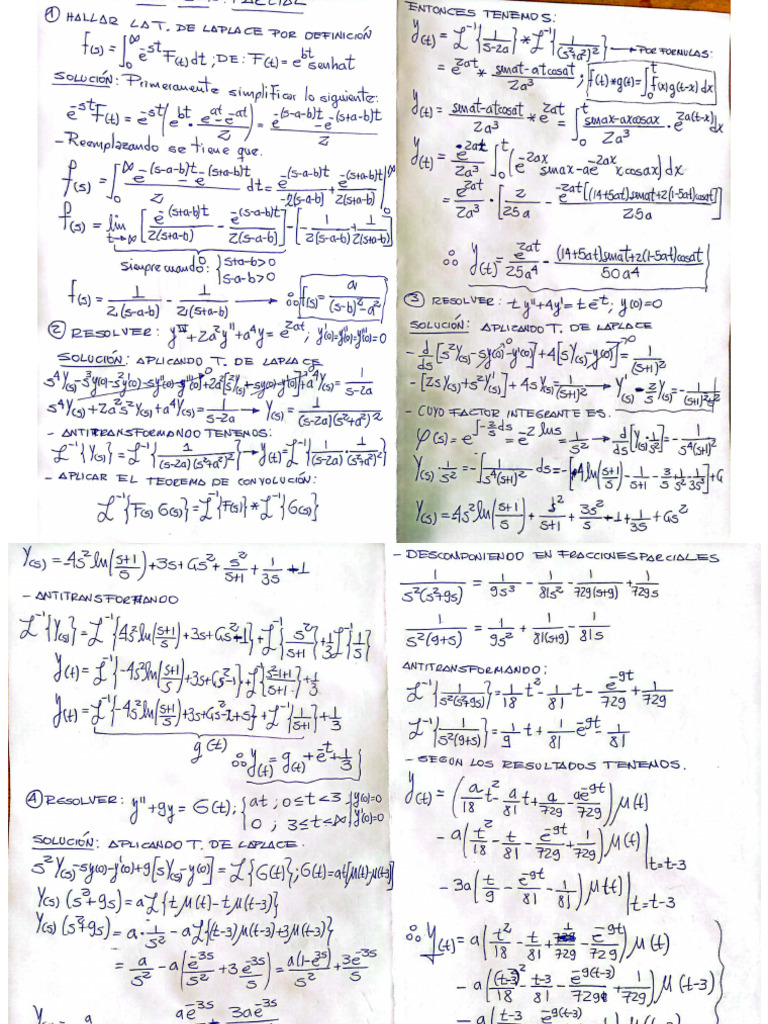 PARCIAL
① HALLAR LA T. DE LAPLACE POR DEFINICIÓN
f(s) = ∫₀^∞ e^-st F(t) dt ; DE: F(t) = e^bt senhat
SOLUCIÓN: Primeramente simplificar lo siguiente:
e^-st F(t) = e^-st (e^bt · (e^at - e^-at)/2) = (e^-(s-a-b)t - e^-(s+a-b)t)/2
- Reemplazando se tiene que.
f(s) = ∫₀^∞ (e^-(s-a-b)t - e^-(s+a-b)t)/2 dt = e^-(s-a-b)t/-2(s-a-b) + e^-(s+a-b)t/2(s+a-b) |₀^∞
f(s) = lim t→∞ [e^-(s+a-b)t/2(s+a-b) - e^-(s-a-b)t/2(s-a-b)] - [-1/2(s-a-b) + 1/2(s+a-b)]
siempre cuando: { s+a-b>0
s-a-b>0
f(s) = 1/2(s-a-b) - 1/2(s+a-b) → ∴ f(s) = a/((s-b)²-a²)
② RESOLVER: y^IV + 2a²y'' + a⁴y = e^2at ; y(0)=y'(0)=y''(0)=0
SOLUCIÓN: APLICANDO T. DE LAPLACE
s⁴Y(s) - s³y(0) - s²y'(0) - sy''(0) - y'''(0) + 2a²[s²Y(s) - sy(0) - y'(0)] + a⁴Y(s) = 1/(s-2a)
s⁴Y(s) + 2a²s²Y(s) + a⁴Y(s) = 1/(s-2a) → Y(s) = 1/((s-2a)(s²+a²)²)
- ANTITRANSFORMANDO TENEMOS:
L⁻¹{Y(s)} = L⁻¹{1/((s-2a)(s²+a²)²)} → y(t) = L⁻¹{1/(s-2a) · 1/(s²+a²)²}
- APLICAR EL TEOREMA DE CONVOLUCIÓN:
L⁻¹{F(s) G(s)} = L⁻¹{F(s)} * L⁻¹{G(s)}
ENTONCES TENEMOS:
y(t) = L⁻¹{1/(s-2a)} * L⁻¹{1/(s²+a²)²} → POR FORMULAS:
= e^2at * (sinat - atcosat)/2a³ ; f(t)*g(t) = ∫₀^t f(x) g(t-x) dx
y(t) = (sinat - atcosat)/2a³ * e^2at = ∫₀^t (sinax - axcosax)/2a³ · e^2a(t-x) dx
y(t) = e^2at/2a³ ∫₀^t (e^-2ax sinax - ae^-2ax x cosax) dx
= e^2at/2a³ · [2/25a - e^-2at[(14+5at)sinat + 2(1-5at)cosat]/25a]
∴ y(t) = e^2at/25a⁴ - ((14+5at)sinat + 2(1-5at)cosat)/50a⁴
③ RESOLVER: ty'' + 4y' = te^t ; y(0)=0
SOLUCIÓN: APLICANDO T. DE LAPLACE
- d/ds [s²Y(s) - sy(0) - y'(0)] + 4[sY(s) - y(0)] = 1/(s+1)²
- [2sY(s) + s²Y'(s)] + 4sY(s) = 1/(s+1)² → Y'(s) - 2/s Y(s) = -1/((s+1)²s²)
- CUYO FACTOR INTEGRANTE ES.
φ(s) = e^∫-2/s ds = e^-2 ln s = 1/s² → d/ds [Y(s) · 1/s²] = -1/(s⁴(s+1)²)
Y(s) · 1/s² = -∫ 1/(s⁴(s+1)²) ds = -[4 ln((s+1)/s) - 1/(s+1) - 3/s + 1/s² - 1/3s³] + G
Y(s) = 4s² ln((s+1)/s) + s²/(s+1) + 3s²/s - 1 + 1/3s + Gs²
Y(s) = -4s² ln((s+1)/s) + 3s + Gs² + s²/(s+1) + 1/3s - 1
- ANTITRANSFORMANDO
L⁻¹{Y(s)} = L⁻¹{-4s² ln((s+1)/s) + 3s + Gs² - 1} + L⁻¹{s²/(s+1)} + 1/3 L⁻¹{1/s}
y(t) = L⁻¹{-4s² ln((s+1)/s) + 3s + Gs² - 1} + L⁻¹{(s²-1+1)/(s+1)} + 1/3
y(t) = L⁻¹{-4s² ln((s+1)/s) + 3s + Gs² - 1 + s} + L⁻¹{1/(s+1)} + 1/3
g(t)
∴ y(t) = g(t) + e^-t + 1/3
④ RESOLVER: y'' + 9y = G(t) ; { at ; 0≤t<3 { y(0)=0
0 ; 3≤t<∞ { y'(0)=0
SOLUCIÓN: APLICANDO T. DE LAPLACE.
s²Y(s) - sy(0) - y'(0) + 9[sY(s) - y(0)] = L{G(t)} ; G(t) = at[μ(t) - μ(t-3)]
Y(s)(s²+9s) = aL{tμ(t) - tμ(t-3)}
Y(s)(s²+9s) = a · 1/s² - aL{(t-3)μ(t-3) + 3μ(t-3)}
= a/s² - a(e^-3s/s² + 3e^-3s/s) = a(1-e^-3s)/s² + 3e^-3s/s
- DESCOMPONIENDO EN FRACCIONES PARCIALES
1/(s²(s²+9s)) = 1/9s³ - 1/81s² - 1/729(s+9) + 1/729s
1/(s²(9+s)) = 1/9s² + 1/81(s+9) - 1/81s
ANTITRANSFORMANDO:
L⁻¹{1/(s²(s²+9s))} = 1/18 t² - 1/81 t - e^-9t/729 + 1/729
L⁻¹{1/(s²(9+s))} = 1/9 t + 1/81 e^-9t - 1/81
- SEGÚN LOS RESULTADOS TENEMOS.
y(t) = (a/18 t² - a/81 t + a/729 - ae^-9t/729) μ(t)
- a(t²/18 - t/81 - e^-9t/729 + 1/729) μ(t) | t=t-3
- 3a(t/9 - e^-9t/81 - 1/81) μ(t) | t=t-3
∴ y(t) = a(t²/18 - t/81 + 1/729 - e^-9t/729) μ(t)
- a((t-3)²/18 - (t-3)/81 - e^-9(t-3)/729 + 1/729) μ(t-3)